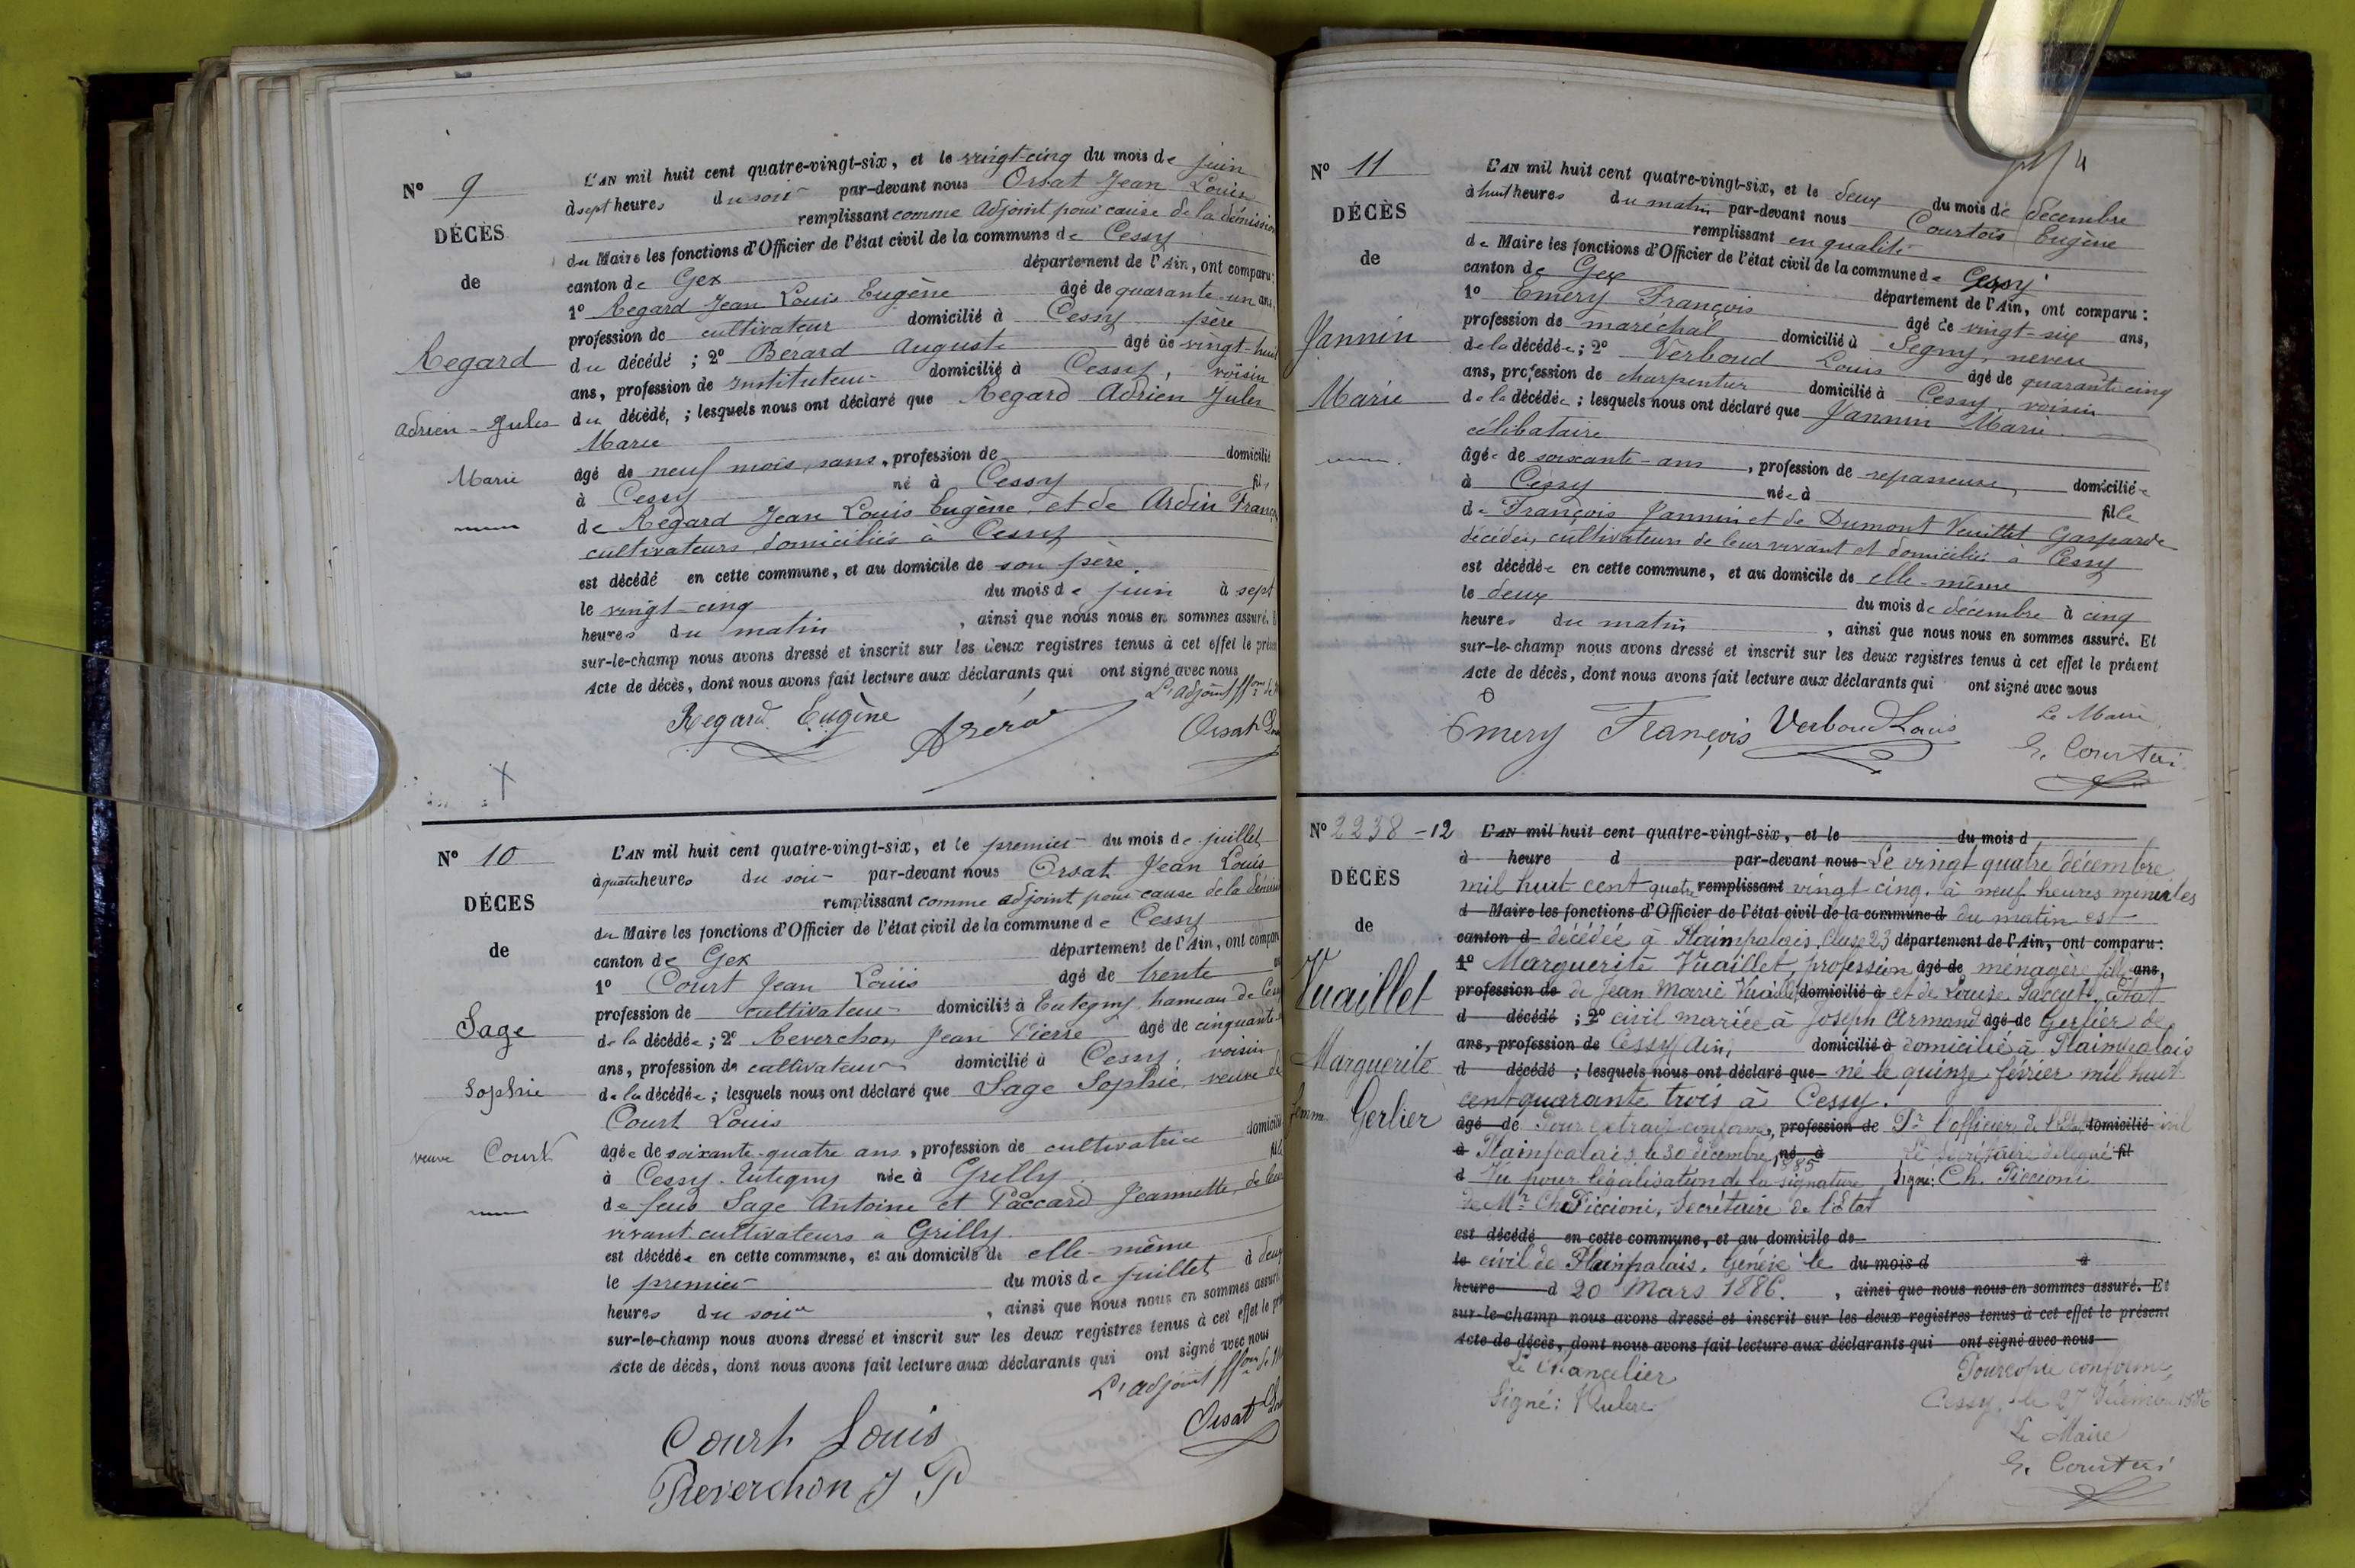 N° 9
DÉCÈS
de
Regard
Adrien-Jules
Marie
L'AN mil huit cent quatre-vingt-six, et le vingt-cinq du mois de juin
à sept heures du soir par-devant nous Orsat Jean Louis
remplissant comme adjoint pour cause de la démission
du Maire les fonctions d'Officier de l'état civil de la commune de Cessy
canton de Gex département de l'Ain, ont comparu:
1° Regard Jean Louis Eugène âgé de quarante-un ans,
profession de cultivateur domicilié à Cessy père
du décédé ; 2° Bérard Auguste âgé de vingt-huit
ans, profession de instituteur domicilié à Cessy, voisin
du décédé, ; lesquels nous ont déclaré que Regard Adrien Jules
Marie
âgé de neuf mois, sans, profession de domicilié
à Cessy né à Cessy fils
de Regard Jean Louis Eugène et de Ardin
cultivateurs domiciliés à Cessy
est décédé en cette commune, et au domicile de son père.
le vingt-cinq du mois de juin à sept
heures du matin , ainsi que nous nous en sommes assuré.
sur-le-champ nous avons dressé et inscrit sur les deux registres tenus à cet effet le
Acte de décès, dont nous avons fait lecture aux déclarants qui ont signé avec nous
L'adjoint
Regard Eugène
Orsat
N° 10
DÉCES
de
Sage
Sophie
veuve Court
L'AN mil huit cent quatre-vingt-six, et le premier du mois de juillet
à quatre heures du soir par-devant nous Orsat Jean Louis
remplissant comme adjoint pour cause de la
du Maire les fonctions d'Officier de l'état civil de la commune de Cessy
canton de Gex département de l'Ain, ont
1° Court Jean Louis âgé de trente
profession de cultivateur domicilié à Tutegny hameau de
de la décédée ; 2° Reverchon Jean Pierre âgé de cinquante
ans, profession de cultivateur domicilié à Cessy, voisin
de la décédée ; lesquels nous ont déclaré que Sage Sophie, veuve de
Court Louis
âgée de soixante-quatre ans, profession de cultivatrice
à Cessy-Tutegny née à Grilly.
de feus Sage Antoine et Paccard Jeannette, de leur
vivant cultivateurs à Grilly.
est décédée en cette commune, et au domicile de elle-même
le premier du mois de juillet à deux
heures du soir , ainsi que nous nous en sommes assuré.
sur-le-champ nous avons dressé et inscrit sur les deux registres tenus à cet effet le
Acte de décès, dont nous avons fait lecture aux déclarants qui ont signé avec nous
L'adjoint
Orsat
Court Louis
Reverchon J P
N° 11
DÉCÈS
de
Jannin
Marie
L'AN mil huit cent quatre-vingt-six, et le deux du mois de décembre
à huit heures du matin par-devant nous Courtois Eugène
remplissant en qualité
de Maire les fonctions d'Officier de l'état civil de la commune de Cessy
canton de Gex département de l'Ain, ont comparu :
1° Emery François âgé de vingt-six ans,
profession de maréchal domicilié à Segny, neveu
de la décédée ; 2° Verboud Louis âgé de quarante cinq
ans, profession de charpentier domicilié à Cessy, voisin
de la décédée ; lesquels nous ont déclaré que Jannin Marie
célibataire
âgée de soixante-ans , profession de repasseuse, domiciliée
à Cessy née à fille
de François Jannin et de Dumont Vuillet Gasparde
décédés, cultivateurs de leur vivant et domiciliés à Cessy
est décédée en cette commune, et au domicile de elle-même
le deux du mois de décembre à cinq
heures du matin , ainsi que nous nous en sommes assuré. Et
sur-le-champ nous avons dressé et inscrit sur les deux registres tenus à cet effet le présent
Acte de décès, dont nous avons fait lecture aux déclarants qui ont signé avec nous
Emery François Verboud Louis
Le Maire
E. Courtois
N° 2238-12
DÉCÈS
de
Vuaillet
Marguerite
femme Gerlier
L'AN mil huit cent quatre-vingt-six, et le du mois d
à heure d par-devant nous Le vingt quatre décembre
mil huit cent quatre remplissant vingt cinq, à neuf heures minutes
d Maire les fonctions d'Officier de l'état civil de la commune d du matin est
canton d décédée à Plainpalais, 23 département de l'Ain, ont comparu:
1° Marguerite Vuaillet, profession âgé de ménagère fille ans,
profession de de Jean Marie Vuaillet domicilié à et de Louise Etat
d décédé ; 2° civil mariée à Joseph Armand âgé de Gerlier de
ans, profession de Cessy Ain, domicilié à domicilié à Plainpalais
d décédé ; lesquels nous ont déclaré que né le quinze février mil huit
cent quarante trois à Cessy.
âgé de Pour extrait conforme, profession de Pr l'officier de l'état domicilié civil
à Plainpalais, le 30 décembre 1885 né à Le secrétaire délégué fil
d Vu pour légalisation de la signature Signé: Ch. Piccioni
de Mr Ch. Piccioni, Secrétaire de l'Etat
est décédé en cette commune, et au domicile de
le civil de Plainpalais. Genève le du mois d à
heure d 20 Mars 1886. , ainsi que nous nous en sommes assuré. Et
sur-le-champ nous avons dressé et inscrit sur les deux registres tenus à cet effet le présent
Acte de décès, dont nous avons fait lecture aux déclarants qui ont signé avec nous
Le Chancelier
Signé:
Pour copie conforme,
Cessy, le 27 1886
Le Maire
E. Courtois